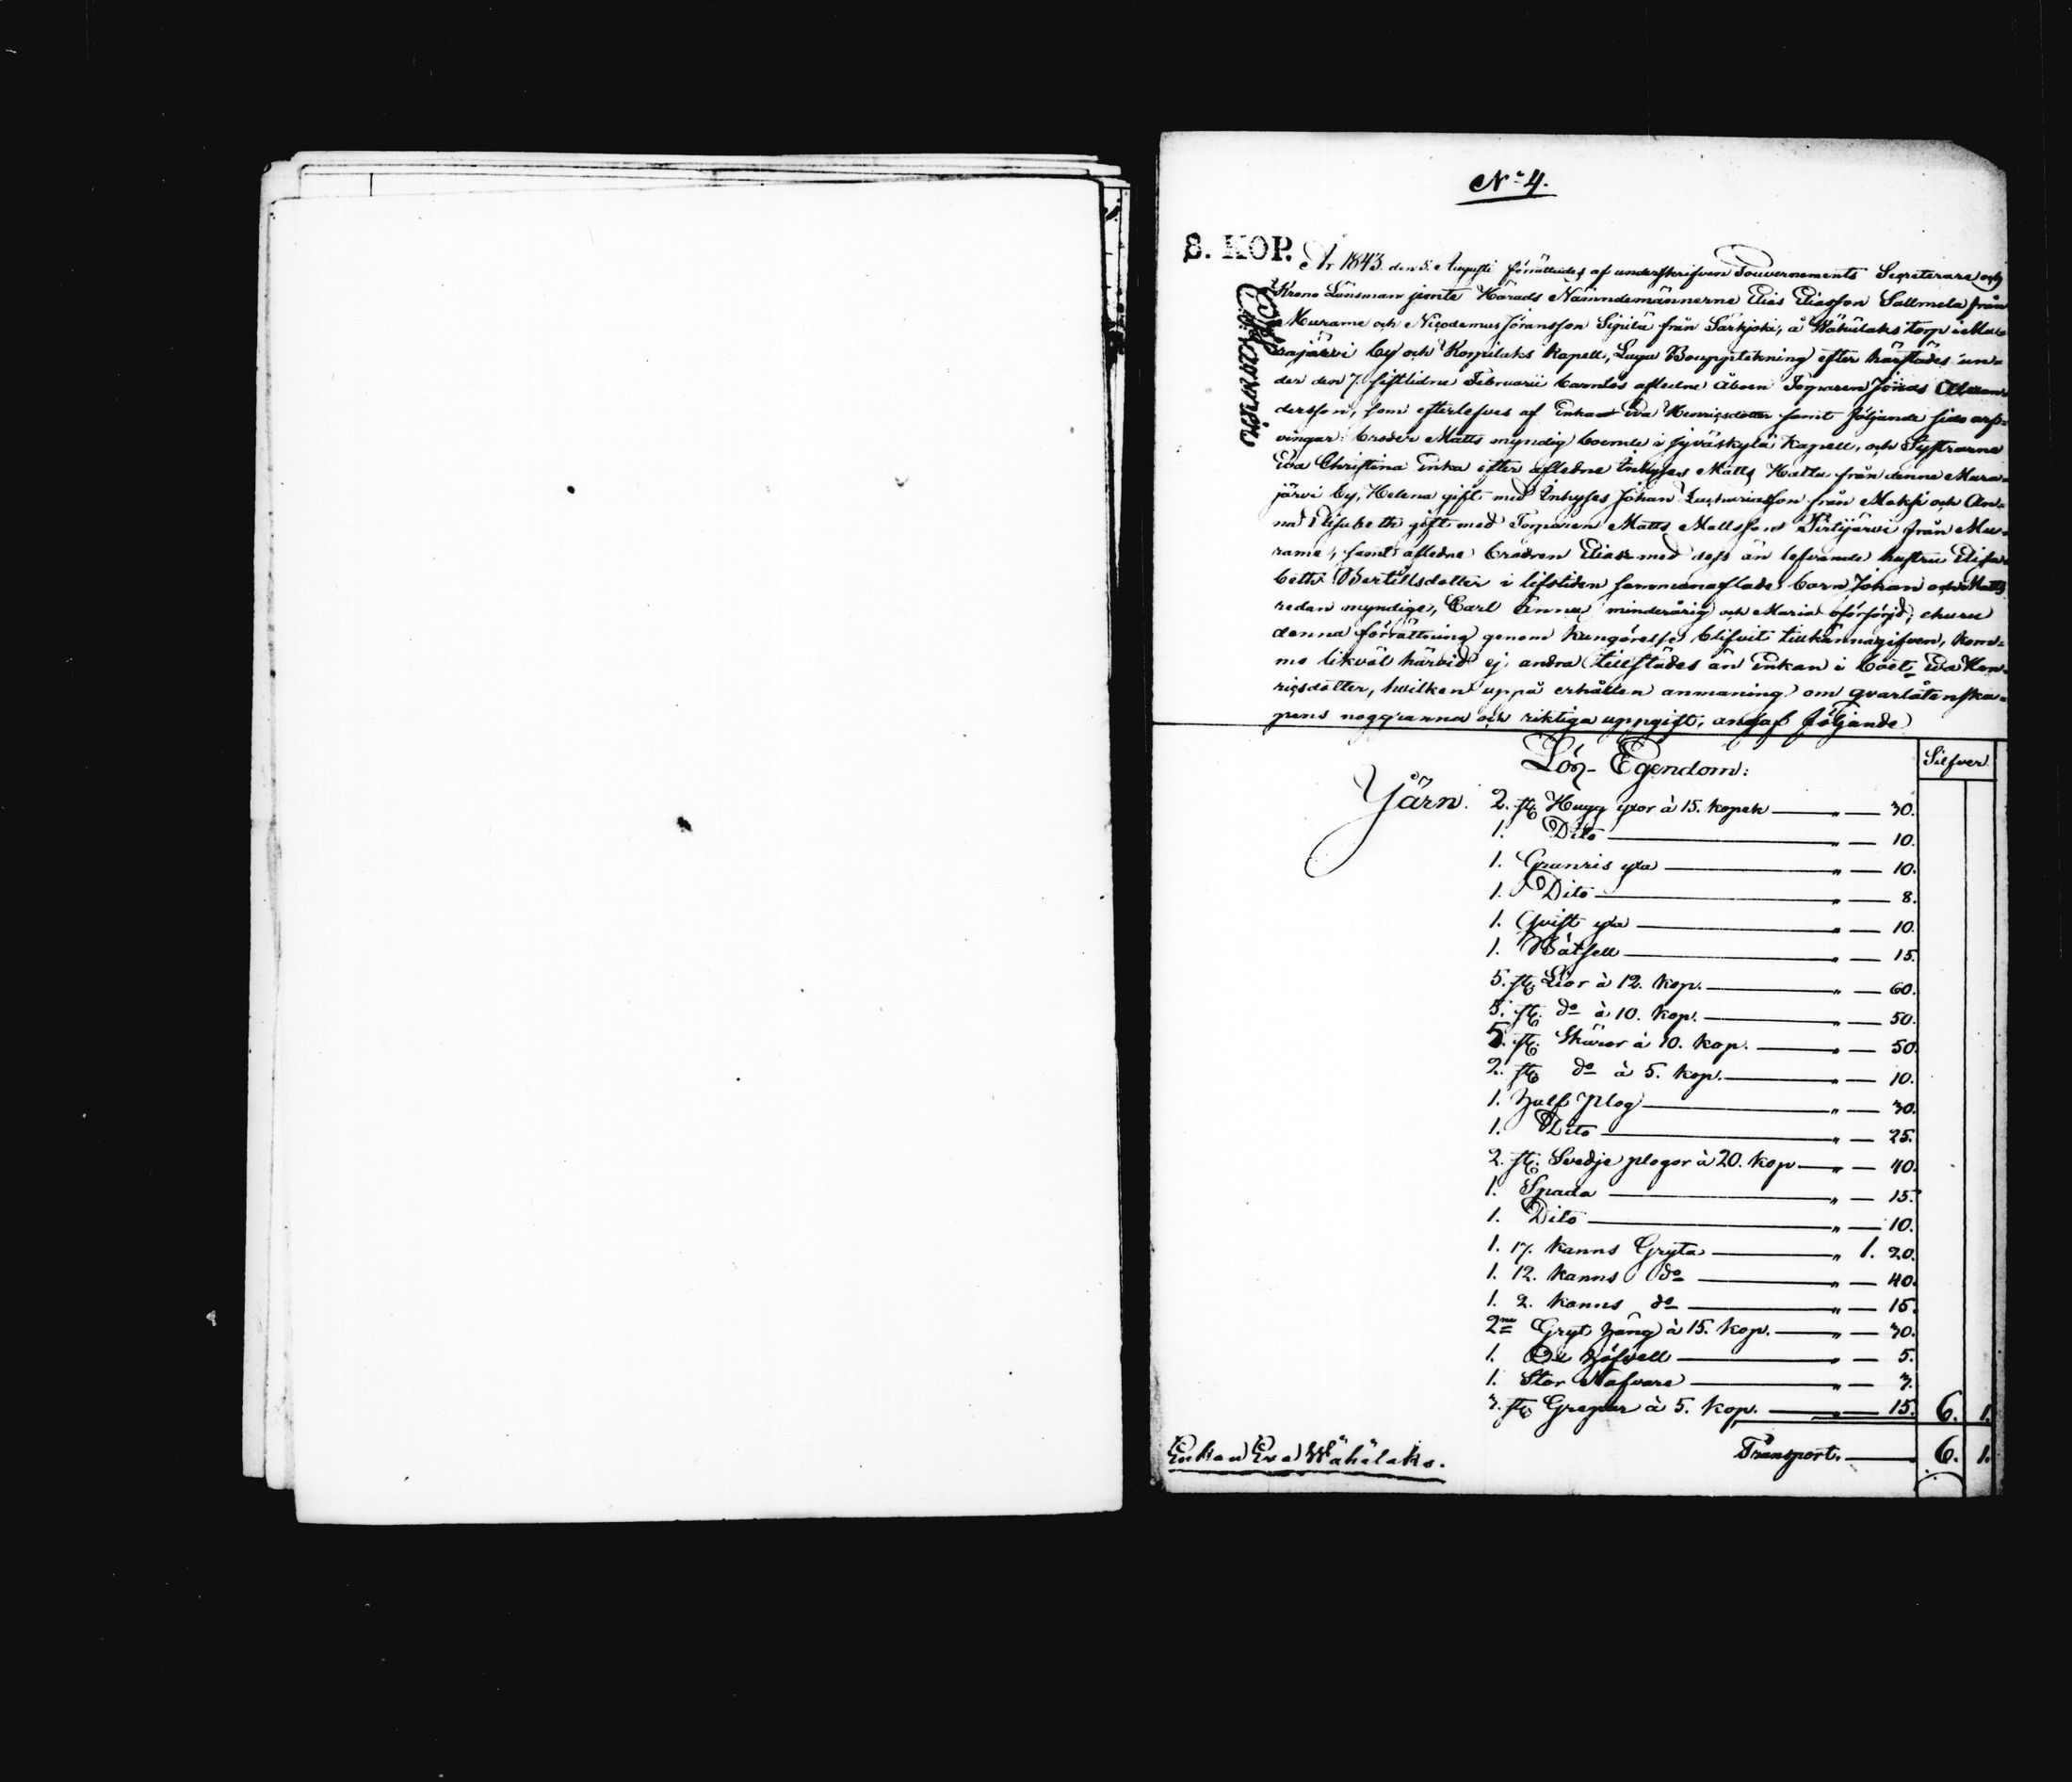 No 4.
8. KOP.
År 1843 den 5. Augusti förrättades af underskrifven Gouvernements Secreterare och
Krono Länsman jemte Härads Nämndemännerne Elias Eliasson Sallmela från
Murame och Nicodemus Jöransson Sipilä från Särkjoki, å Wähälaks torp i Mu-
rajärvi by och Korpilaks Kapell, Laga Bouppteckning efter härstädes un-
der den 7. sistlidne Februarii barnlös aflidne Åboen Torparen Jonas Alexan-
dersson, som efterlefves af Enkan Eva Henricsdotter samt följande sido arf-
vingar: broder Matts myndig boende i Jyväskylä Kapell, och Systrarna
Eva Christina Enka efter aflidne Inhyses Matts Hatta från denne Mura-
järvi by, Helena gift med Inhyses Johan Zachariasson från Moksi och An-
na Elisabeth gift med Torparen Matts Mattsson från Mu-
rame, samt aflidne brodren Elias med dess än lefvande hustru Elisa-
beth Bertillsdotter i lifstiden sammanaflade barn Johan och Matts
redan myndige, Carl Anna minderårig och Maria oförsörjd; ehuru
denna förrättning genom kungörelse blifvit tillkännagifven, kom-
mo likväl härvid ej andra tillstädes än Enkan i boet Eva Hen-
ricsdotter, hvilken uppå erhållen anmaning om qvarlåtenska-
pens noggranna och riktiga uppgift, angaf följande
Lös-Egendom:
Silfver
Järn. 2. st. Hugg yxor à 15. kopek — " — 30.
1. Dito — " — 10.
1. Granris yxa — " — 10.
1. Dito — " — 8.
1. Qvist yxa — " — 10.
1. — " — 15.
5. st. Liar à 12. kop. — " — 60.
5. st. do à 10. kop. — " — 50.
5. st. Skäror à 10. kop. — " — 50.
2. st. do à 5. kop. — " — 10.
1. Half Plog — " — 30.
1. Dito — " — 25.
2. st. Svedje plogor à 20. kop — " — 40.
1. Spada — " — 15.
1. Dito — " — 10.
1. 17. kanns Gryta — " 1. 20.
1. 12. kanns do — " — 40.
1. 2. kanns do — " — 15.
2ne Gryt häng à 15. kop. — " — 30.
1. — " — 5.
1. Stor Nafvare — " — 3.
3. st. Grepar à 5. kop. — " — 15. 6. 1.
Enkan Eva Wähälaks. Transport. — 6. 1.